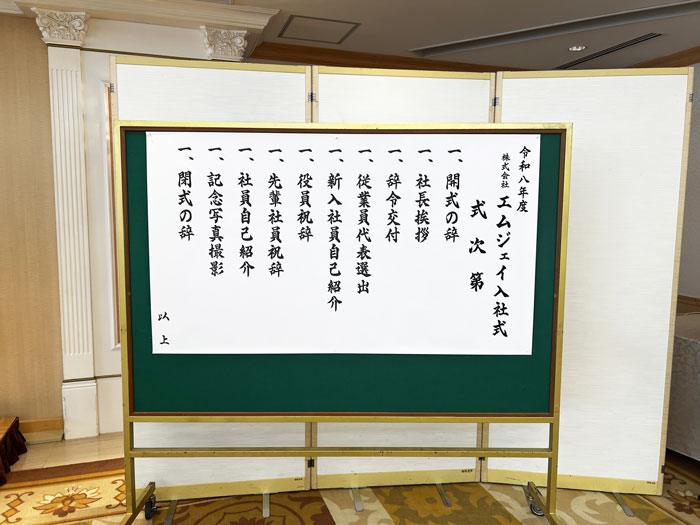 令和八年度
株式会社 エムジェイ入社式
式次第
一、開式の辞
一、社長挨拶
一、辞令交付
一、従業員代表選出
一、新入社員自己紹介
一、役員祝辞
一、先輩社員祝辞
一、社員自己紹介
一、記念写真撮影
一、閉式の辞
以上